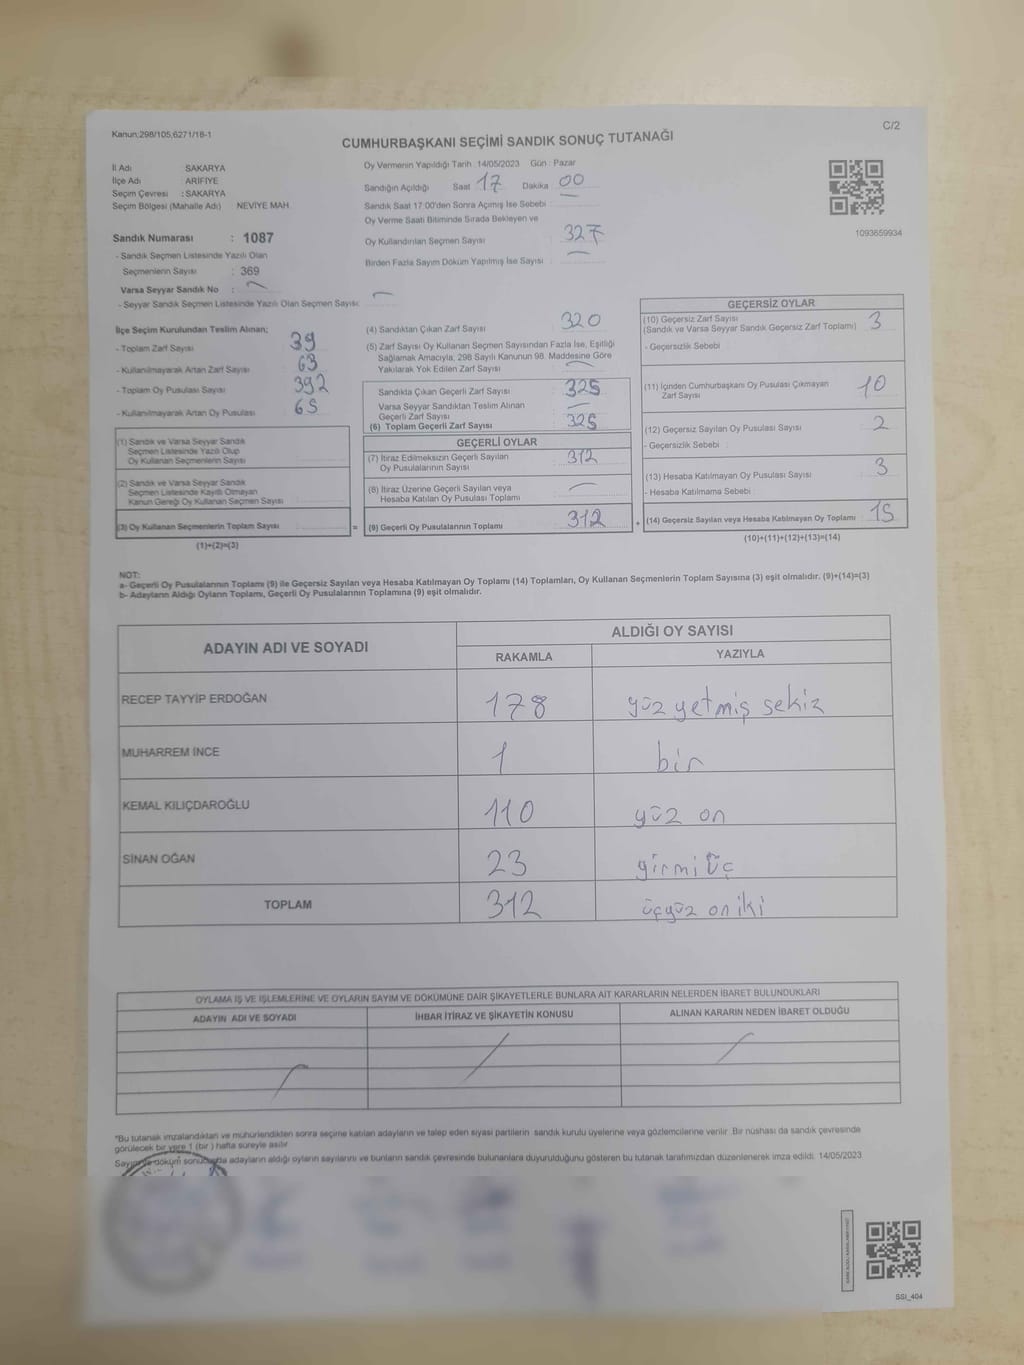 Kanun;298/105,6271/18-1
C/2
CUMHURBAŞKANI SEÇİMİ SANDIK SONUÇ TUTANAĞI
İl Adı SAKARYA
İlçe Adı ARİFİYE
Seçim Çevresi : SAKARYA
Seçim Bölgesi (Mahalle Adı) NEVİYE MAH.
Oy Vermenin Yapıldığı Tarih 14/05/2023 Gün : Pazar
Sandığın Açıldığı Saat 17 Dakika 00
Sandık Saat 17:00'den Sonra Açımış İse Sebebi
Oy Verme Saati Bitiminde Sırada Bekleyen ve
Oy Kullandırılan Seçmen Sayısı : 327
Birden Fazla Sayım Döküm Yapılmış İse Sayısı :
1093659934
Sandık Numarası : 1087
- Sandık Seçmen Listesinde Yazılı Olan
Seçmenlerin Sayısı : 369
Varsa Seyyar Sandık No :
- Seyyar Sandık Seçmen Listesinde Yazılı Olan Seçmen Sayısı:
İlçe Seçim Kurulundan Teslim Alınan;
- Toplam Zarf Sayısı : 39
- Kullanılmayarak Artan Zarf Sayısı : 63
- Toplam Oy Pusulası Sayısı : 392
- Kullanılmayarak Artan Oy Pusulası : 65
(1) Sandık ve Varsa Seyyar Sandık
Seçmen Listesinde Yazılı Olup
Oy Kullanan Seçmenlerin Sayısı
(2) Sandık ve Varsa Seyyar Sandık
Seçmen Listesinde Kayıtlı Olmayan
Kanun Gereği Oy Kullanan Seçmen Sayısı
(3) Oy Kullanan Seçmenlerin Toplam Sayısı
(1)+(2)=(3)
(4) Sandıktan Çıkan Zarf Sayısı : 320
(5) Zarf Sayısı Oy Kullanan Seçmen Sayısından Fazla İse, Eşitliği
Sağlamak Amacıyla, 298 Sayılı Kanunun 98. Maddesine Göre
Yakılarak Yok Edilen Zarf Sayısı
Sandıkta Çıkan Geçerli Zarf Sayısı : 325
Varsa Seyyar Sandıktan Teslim Alınan
Geçerli Zarf Sayısı
(6) Toplam Geçerli Zarf Sayısı : 325
GEÇERLİ OYLAR
(7) İtiraz Edilmeksizin Geçerli Sayılan
Oy Pusulalarının Sayısı : 312
(8) İtiraz Üzerine Geçerli Sayılan veya
Hesaba Katılan Oy Pusulası Toplamı
= (9) Geçerli Oy Pusulalarının Toplamı : 312
GEÇERSİZ OYLAR
(10) Geçersiz Zarf Sayısı
(Sandık ve Varsa Seyyar Sandık Geçersiz Zarf Toplamı) : 3
- Geçersizlik Sebebi :
(11) İçinden Cumhurbaşkanı Oy Pusulası Çıkmayan
Zarf Sayısı : 10
(12) Geçersiz Sayılan Oy Pusulası Sayısı : 2
- Geçersizlik Sebebi :
(13) Hesaba Katılmayan Oy Pusulası Sayısı : 3
- Hesaba Katılmama Sebebi :
+ (14) Geçersiz Sayılan veya Hesaba Katılmayan Oy Toplamı : 15
(10)+(11)+(12)+(13)=(14)
NOT:
a- Geçerli Oy Pusulalarının Toplamı (9) ile Geçersiz Sayılan veya Hesaba Katılmayan Oy Toplamı (14) Toplamları, Oy Kullanan Seçmenlerin Toplam Sayısına (3) eşit olmalıdır. (9)+(14)=(3)
b- Adayların Aldığı Oyların Toplamı, Geçerli Oy Pusulalarının Toplamına (9) eşit olmalıdır.
ADAYIN ADI VE SOYADI
ALDIĞI OY SAYISI
RAKAMLA YAZIYLA
RECEP TAYYİP ERDOĞAN 178 yüz yetmiş sekiz
MUHARREM İNCE 1 bir
KEMAL KILIÇDAROĞLU 110 yüz on
SİNAN OĞAN 23 yirmi üç
TOPLAM 312 üçyüz on iki
OYLAMA İŞ VE İŞLEMLERİNE VE OYLARIN SAYIM VE DÖKÜMÜNE DAİR ŞİKAYETLERLE BUNLARA AİT KARARLARIN NELERDEN İBARET BULUNDUKLARI
ADAYIN ADI VE SOYADI İHBAR İTİRAZ VE ŞİKAYETİN KONUSU ALINAN KARARIN NEDEN İBARET OLDUĞU
*Bu tutanak imzalandıktan ve mühürlendikten sonra seçime katılan adayların ve talep eden siyasi partilerin sandık kurulu üyelerine veya gözlemcilerine verilir. Bir nüshası da sandık çevresinde
görülecek bir yere 1 (bir) hafta süreyle asılır.
Sayım ve döküm sonucunda adayların aldığı oyların sayılarını ve bunların sandık çevresinde bulunanlara duyurulduğunu gösteren bu tutanak tarafımızdan düzenlenerek imza edildi. 14/05/2023
SSI_404